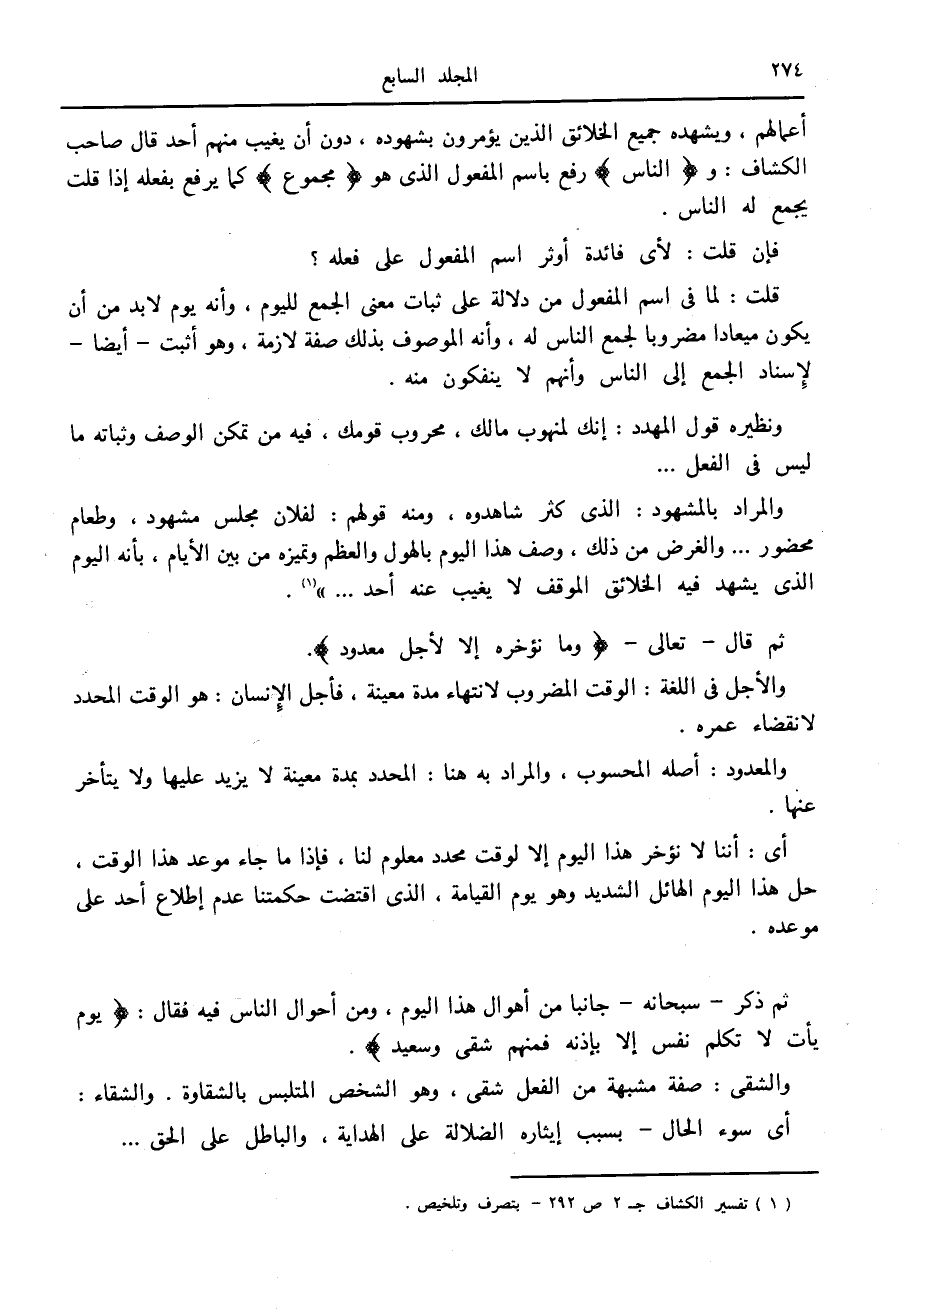 ٢٧٤
المجلد السابع
أعمالهم ، ويشهده جميع الخلائق الذين يؤمرون بشهوده ، دون أن يغيب منهم أحد قال صاحب
الكشاف : و ﴿ الناس ﴾ رفع باسم المفعول الذى هو ﴿ مجموع ﴾ كما يرفع بفعله إذا قلت
يجمع له الناس .
فإن قلت : لأى فائدة أوثر اسم المفعول على فعله ؟
قلت : لما فى اسم المفعول من دلالة على ثبات معنى الجمع لليوم ، وأنه يوم لابد من أن
يكون ميعادا مضروبا لجمع الناس له ، وأنه الموصوف بذلك صفة لازمة ، وهو أثبت – أيضا –
لإسناد الجمع إلى الناس وأنهم لا ينفكون منه .
ونظيره قول المهدد : إنك لمنهوب مالك ، محروب قومك ، فيه من تمكن الوصف وثباته ما
ليس فى الفعل ...
والمراد بالمشهود : الذى كثر شاهدوه ، ومنه قولهم : لفلان مجلس مشهود ، وطعام
محضور ... والغرض من ذلك ، وصف هذا اليوم بالهول والعظم وتميزه من بين الأيام ، بأنه اليوم
الذى يشهد فيه الخلائق الموقف لا يغيب عنه أحد ... »(١) .
ثم قال – تعالى – ﴿ وما نؤخره إلا لأجل معدود ﴾.
والأجل فى اللغة : الوقت المضروب لانتهاء مدة معينة ، فأجل الإنسان : هو الوقت المحدد
لانقضاء عمره .
والمعدود : أصله المحسوب ، والمراد به هنا : المحدد بمدة معينة لا يزيد عليها ولا يتأخر
عنها .
أى : أننا لا نؤخر هذا اليوم إلا لوقت محدد معلوم لنا ، فإذا ما جاء موعد هذا الوقت ،
حل هذا اليوم الهائل الشديد وهو يوم القيامة ، الذى اقتضت حكمتنا عدم إطلاع أحد على
موعده .
ثم ذكر – سبحانه – جانبا من أهوال هذا اليوم ، ومن أحوال الناس فيه فقال : ﴿ يوم
يأت لا تكلم نفس إلا بإذنه فمنهم شقى وسعيد ﴾ .
والشقى : صفة مشبهة من الفعل شقى ، وهو الشخص المتلبس بالشقاوة . والشقاء :
أى سوء الحال – بسبب إيثاره الضلالة على الهداية ، والباطل على الحق ...
( ١ ) تفسير الكشاف جـ ٢ ص ٢٩٢ – بتصرف وتلخيص .